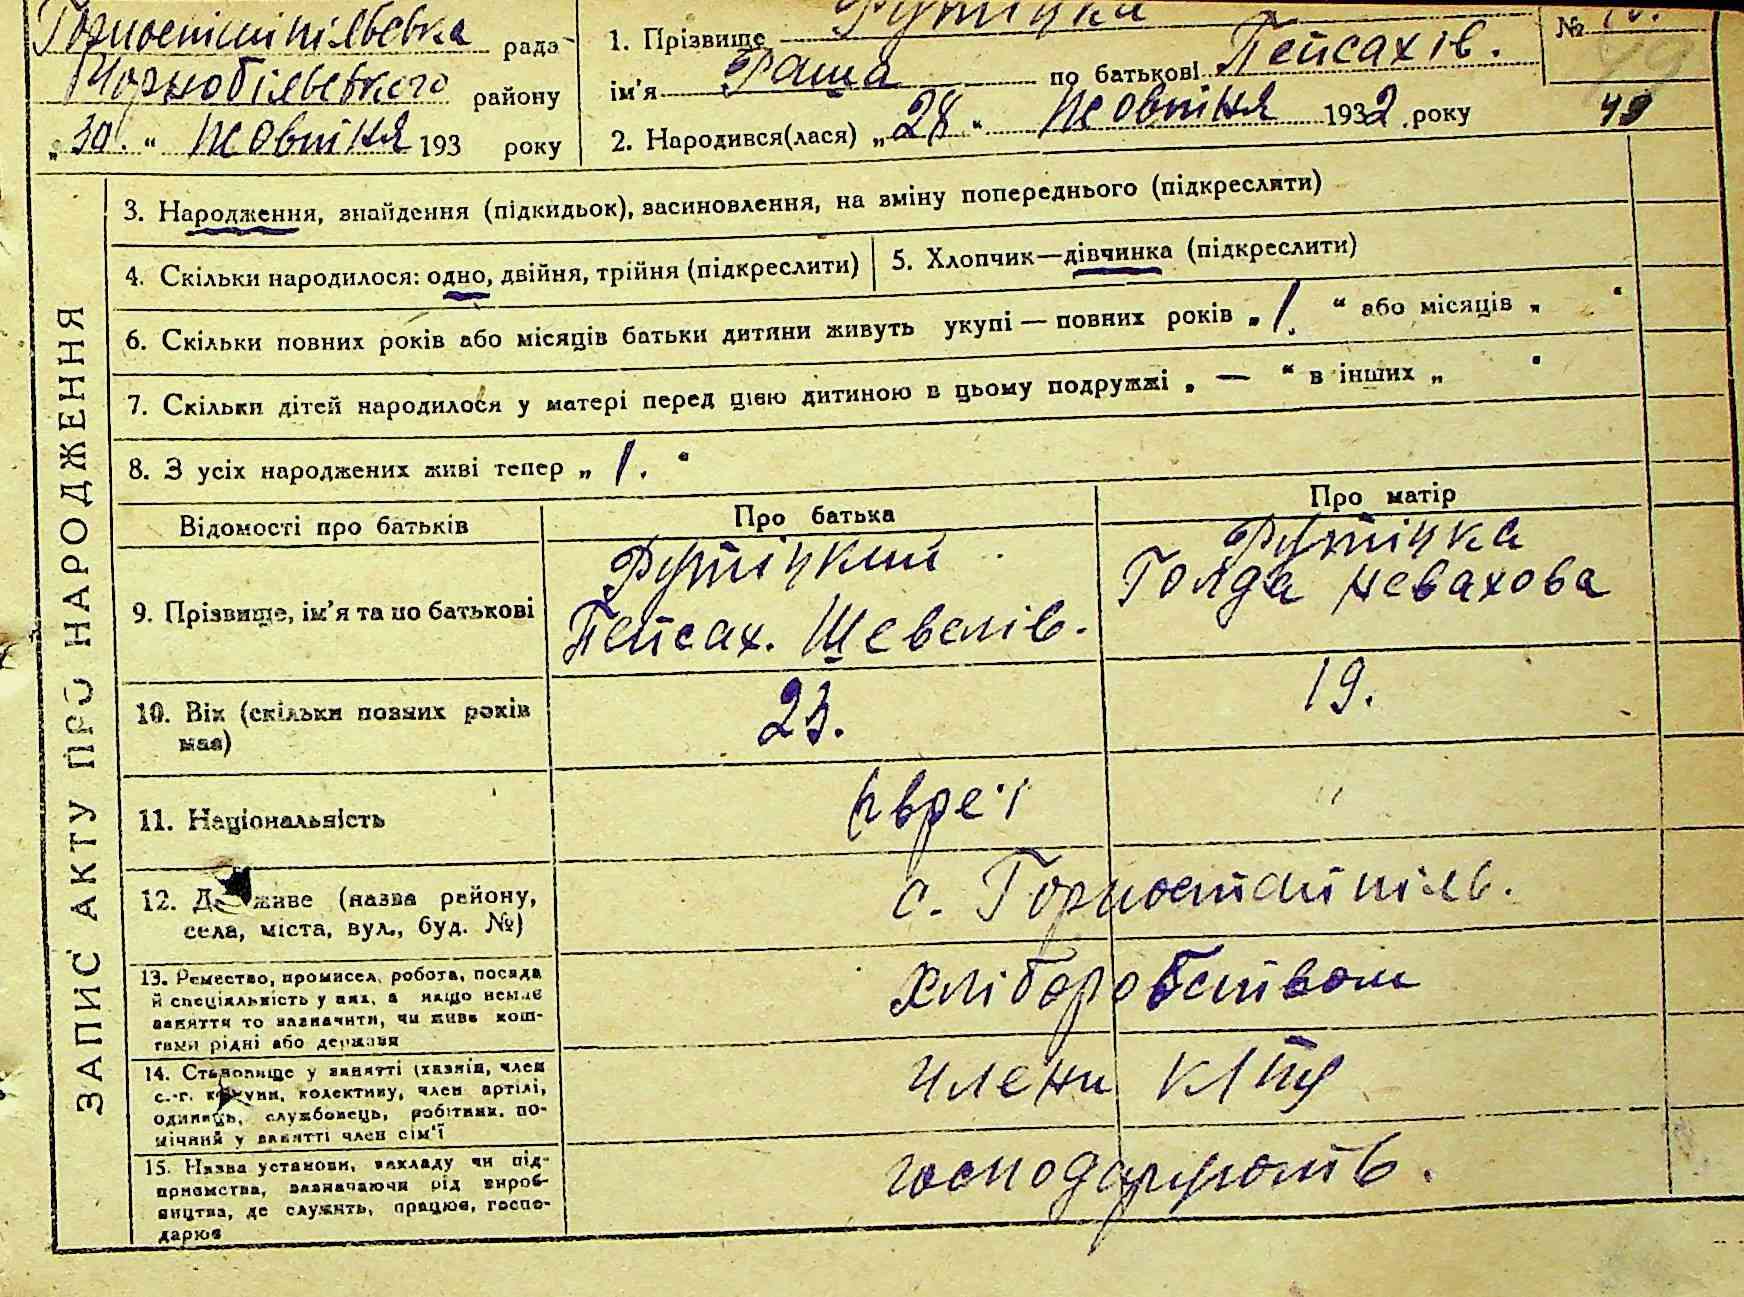 Горностайпільська рада
Чорнобільського району
„30.“ Жовтня 193 року
1. Прізвище Рутіцка
ім'я Раша по батькові Пейсахів.
2. Народився(лася) „28“ Жовтня 1932 року
№
49
49
ЗАПИС АКТУ ПРО НАРОДЖЕННЯ
3. Народження, знайдення (підкидьок), засиновлення, на зміну попереднього (підкреслити)
4. Скільки народилося: одно, двійня, трійня (підкреслити)
5. Хлопчик—дівчинка (підкреслити)
6. Скільки повних років або місяців батьки дитини живуть укупі — повних років „1.“ або місяців „ “
7. Скільки дітей народилося у матері перед цією дитиною в цьому подружжі „—“ в інших „ “
8. З усіх народжених живі тепер „1.“
Відомості про батьків
Про батька
Про матір
9. Прізвище, ім'я та по батькові
Рутіцкий
Пейсах. Шевелів.
Рутіцка
Голда Невахова
10. Вік (скільки повних років
має)
23.
19.
11. Національність
євреї
"
12. Де живе (назва району,
села, міста, вул., буд. №)
с. Горностайпіль.
13. Ремество, промисел, робота, посада
й спеціяльність у них, а якщо немає
заняття то зазначити, чи живе кош-
тами рідні або держави
хліборобством
14. Становище у занятті (хазяїн, член
с.-г. комуни, колективу, член артілі,
одинець, службовець, робітник, по-
мічний у занятті член сім'ї
члени
15. Назва установи, закладу чи під-
приємства, зазначаючи рід вироб-
ництва, де служить, працює, госпо-
дарює
господарюють.